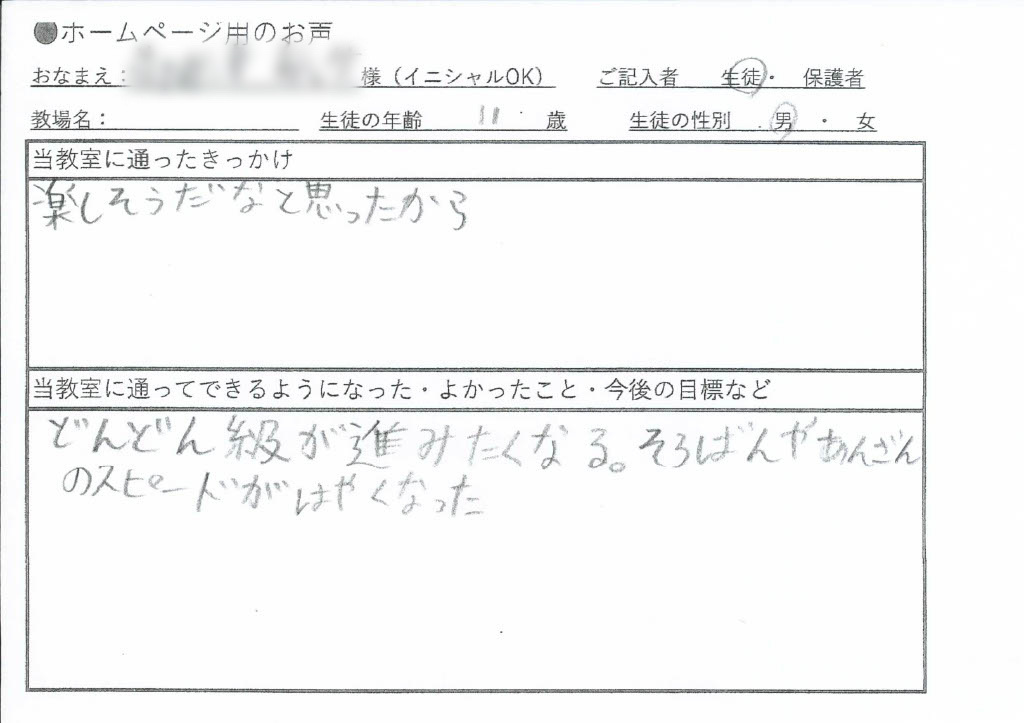 ●ホームページ用のお声
おなまえ： 様（イニシャルOK） ご記入者 生徒・ 保護者
教場名： 生徒の年齢 11 歳 生徒の性別 男 ・ 女
当教室に通ったきっかけ
楽しそうだなと思ったから
当教室に通ってできるようになった・よかったこと・今後の目標など
どんどん級が進みたくなる。そろばんやあんざん
のスピードがはやくなった